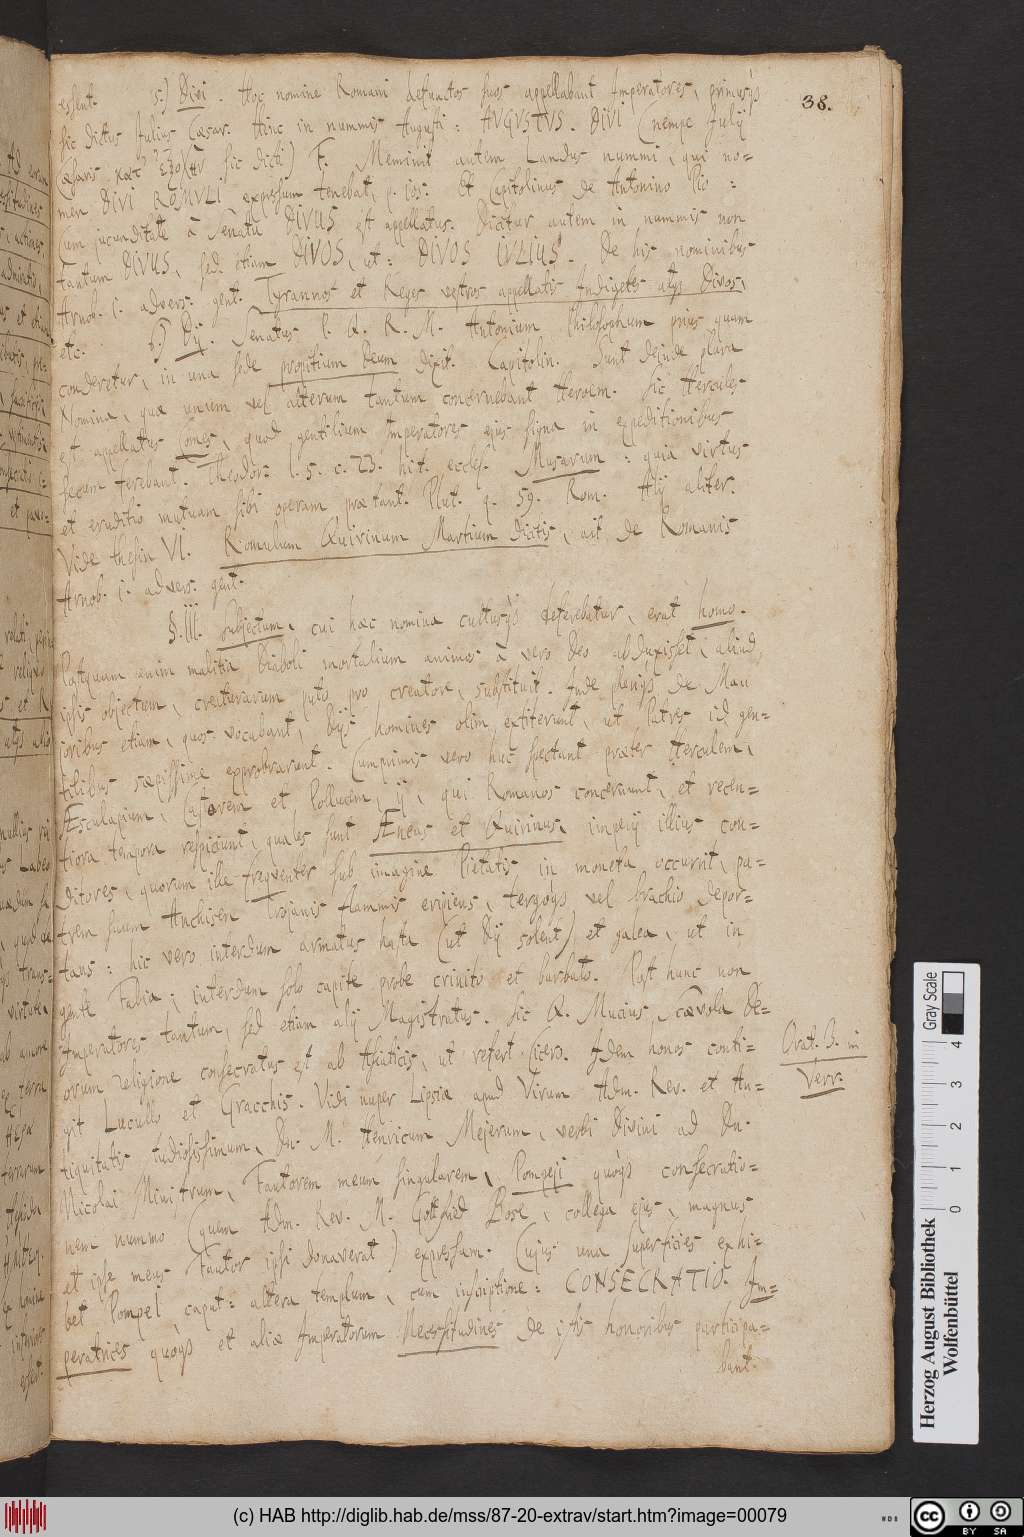 38.
essent. 5.) Divi. Hoc nomine Romani defunctos suos appellabant Imperatores, primusqs
sic dictus Julius Cæsar. Hinc in nummis Augusti: AVGVSTVS. DIVI (nempe Julij
Cæsaris sic dicti) F. Meminit autem Landus nummi, qui no=
men DIVI ROMVLI expressum tenebat, p. 108. Et Capitolinus de Antonino Pio:
Cum jucunditate à Senatu DIVUS est appellatus. Dicitur autem in nummis non
tantum DIVUS, sed etiam DIVOS, ut: DIVOS IVLIUS. De his nominibus
Arnob. l. advers. gent. Tyrannos et Reges vestros appellatis Indigetes atqs Divos,
etc. 6.) Dij. Senatus P. Q. R. M. Antonium Philosophum prius quam
conderetur, in una sede propitium Deum dixit. Capitolin. Sunt deinde plura
Nomina, quæ unum vel alterum tantum concernebant Heroem. Sic Hercules
est appellatus Comes, quod gentilium Imperatores ejus signa in expeditionibus
secum ferebant. Theodor: l. 5. c. 23. hist. eccles. Musarum: quia virtus
et eruditio mutuam sibi operam præstant. Plut. q. 59. Rom. Alij aliter.
Vide thesin VI. Romulum Quirinum Martium dicitis, ait de Romanis
Arnob. 1. advers. gent.
§. III. Subjectum, cui hæc nomina cultusqs deferebatur, erat homo.
Postquam enim malitia Diaboli mortalium animos à vero Deo abduxisset, aliud
ipsis objectum, creaturarum puto pro creatore, substituit. Inde plerisqs de Ma
joribus etiam, quos vocabant, Dijs homines olim extiterunt, ut Patres id gen=
tilibus sæpissime exprobrarunt. Cumprimis vero huc spectant præter Herculem,
Æsculapium, Castorem et Pollucem, ij, qui Romanos concernunt, et recen=
tiora tempora respiciunt, quales sunt Æneas et Quirinus, imperij illius con=
ditores, quorum ille freqventer sub imagine Pietatis in moneta occurrit, pa=
trem suum Anchisen Trojanis flammis eripiens, tergoqs vel brachio depor=
tans: hic vero interdum armatus hasta (ut Dij solent) et galea, ut in
gente Fabia; interdum solo capite probe crinito et barbato. Post hunc non
Imperatores tantum, sed etiam alij Magistratus. Sic Q. Mucius Scævola De=
orum religione consecratus est ab Asiaticis, ut refert Cicero. Idem honos conti=
Orat. 3. in
Verr.
git Lucullo et Gracchis. Vidi nuper Lipsiæ apud Virum Adm. Rev. et An=
tiquitatis studiosissimum, Dn. M. Henricum Mejerum, verbi Divini ad Dn.
Nicolai Ministrum, Fautorem meum singularem, Pompeji quoqs consecratio=
nem nummo (quem Adm. Rev. M. Gottfried Bose, collega ejus, magnus
et ipse meus Fautor ipsi donaverat) expressam. Cujus una superficies exhi=
bet Pompei caput: altera templum, cum inscriptione: CONSECRATIO. Im=
peratrices quoqs et aliæ Imperatorum Necessitudines de istis honoribus participa=
bant.
Gray Scale
0 1 2 3 4
Herzog August Bibliothek
Wolfenbüttel
(c) HAB http://diglib.hab.de/mss/87-20-extrav/start.htm?image=00079
cc BY SA